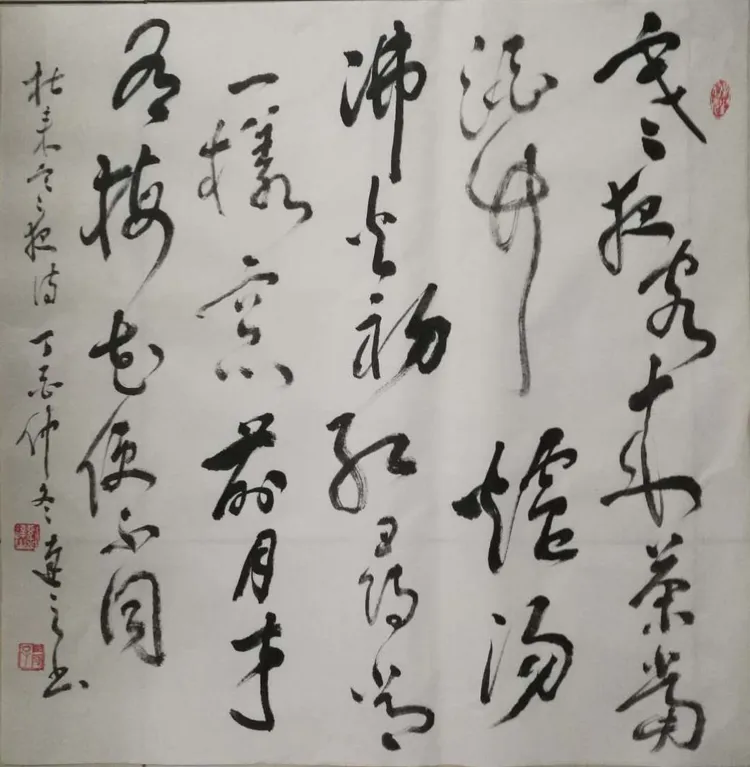 寒夜客来茶當
酒竹爐湯
沸火初紅尋常
一樣窗前月才
有梅花便不同
杜耒寒夜诗 丁酉仲冬 之书